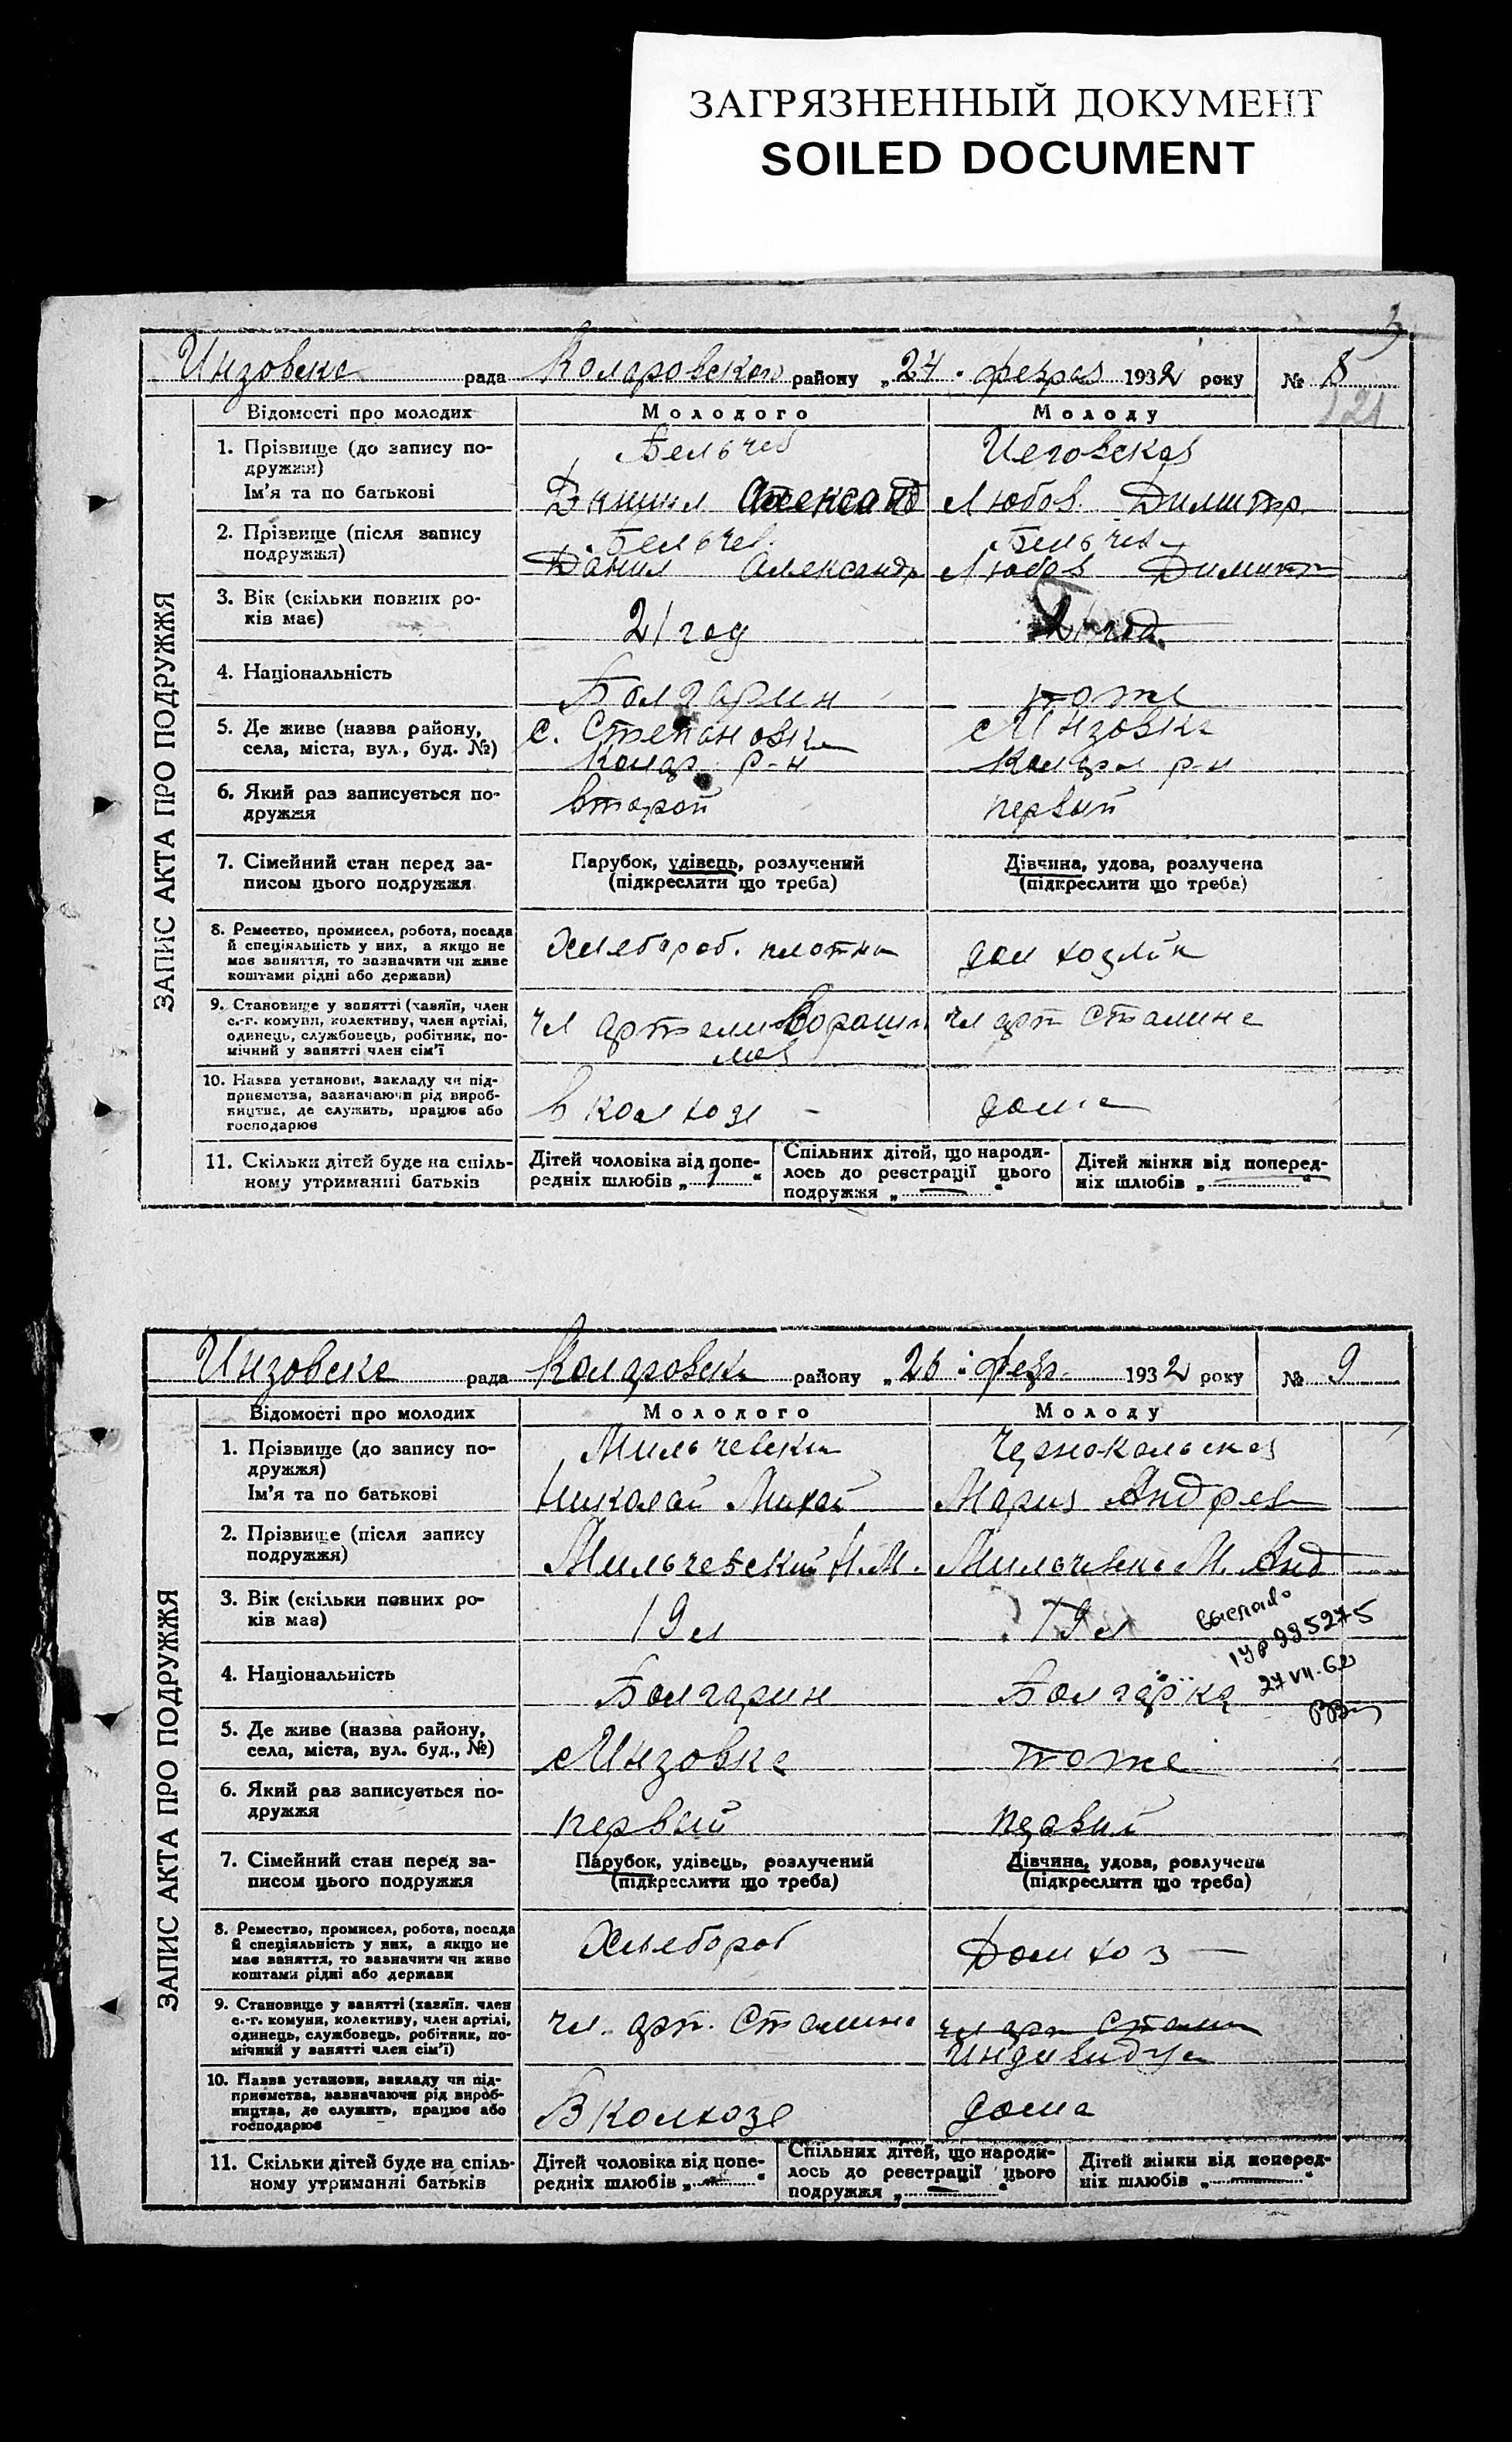 ЗАГРЯЗНЕННЫЙ ДОКУМЕНТ
SOILED DOCUMENT
3
Инзовска рада Коларовского району „24 " феврал 1932 року № 8
121
Відомості про молодих Молодого Молоду
ЗАПИС АКТА ПРО ПОДРУЖЖЯ
1. Прізвище (до запису по-
дружжя)
Ім'я та по батькові
Бельчев
Данил Александ
Любов. Димитр.
2. Прізвище (після запису
подружжя)
Бельчев.
Данил Александр
Бельчев
Любов Димитр
3. Вік (скільки повних ро-
ків має)
21 год
4. Національність
Болгарин
тоже
5. Де живе (назва району,
села, міста, вул., буд. №)
с. Степановка
Колар. р-н
с Инзовка
Колар р-н
6. Який раз записується по-
дружжя
второй
первый
7. Сімейний стан перед за-
писом цього подружжя
Парубок, удівець, розлучений
(підкреслити що треба)
Дівчина, удова, розлучена
(підкреслити що треба)
8. Ремество, промисел, робота, посада
й спеціяльність у них, а якщо не
має заняття, то зазначити чи живе
коштами рідні або держави)
Хлебороб. плотни
дом хозяйк
9. Становище у занятті (хазяїн, член
с.-г. комуни, колективу, член артілі,
одинець, службовець, робітник, по-
мічний у занятті член сім'ї
чл артели Ворошил
лов
чл арт Сталина
10. Назва установи, закладу чи під-
приємства, зазначаючи рід вироб-
ництва, де служить, працює або
господарює
в колхозе -
дома
11. Скільки дітей буде на спіль-
ному утриманні батьків
Дітей чоловіка від попе-
редніх шлюбів „ 1 "
Спільних дітей, що народи-
лось до реєстрації цього
подружжя „ — "
Дітей жінки від поперед-
ніх шлюбів „ "
Инзовска рада Коларовск району „26 " февр. 1932 року № 9
Відомості про молодих Молодого Молоду
ЗАПИС АКТА ПРО ПОДРУЖЖЯ
1. Прізвище (до запису по-
дружжя)
Ім'я та по батькові
Мильчевски
Николай Михай
Чернокольская
Мария Андрев
2. Прізвище (після запису
подружжя)
Мильчевский Н.М.
Мильчевск М. Анд
3. Вік (скільки повних ро-
ків має)
19 л
19 л
выслано
1УР 995275
27 VII-62
4. Національність
Болгарин
Болгарка
5. Де живе (назва району,
села, міста, вул. буд., №)
с Инзовка
тоже
6. Який раз записується по-
дружжя
первый
первый
7. Сімейний стан перед за-
писом цього подружжя
Парубок, удівець, розлучений
(підкреслити що треба)
Дівчина, удова, розлучена
(підкреслити що треба)
8. Ремество, промисел, робота, посада
й спеціяльність у них, а якщо не
має заняття, то зазначити чи живе
коштами рідні або держави
Хлебороб
Дом хоз —
9. Становище у занятті (хазяїн. член
с.-г. комуни, колективу, член артілі,
одинець, службовець, робітник, по-
мічний у занятті член сім'ї)
чл. арт. Сталина
чл арт Сталин
Индивидуа
10. Назва установи, закладу чи під-
приємства, зазначаючи рід вироб-
ництва, де служить, працює або
господарює
В колхозе
дома
11. Скільки дітей буде на спіль-
ному утриманні батьків
Дітей чоловіка від попе-
редніх шлюбів „ "
Спільних дітей, що народи-
лось до реєстрації цього
подружжя „ — "
Дітей жінки від поперед-
ніх шлюбів „ "